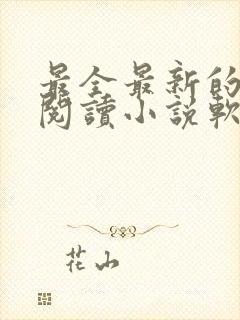 最全最新的
閱讀小說軟
花山